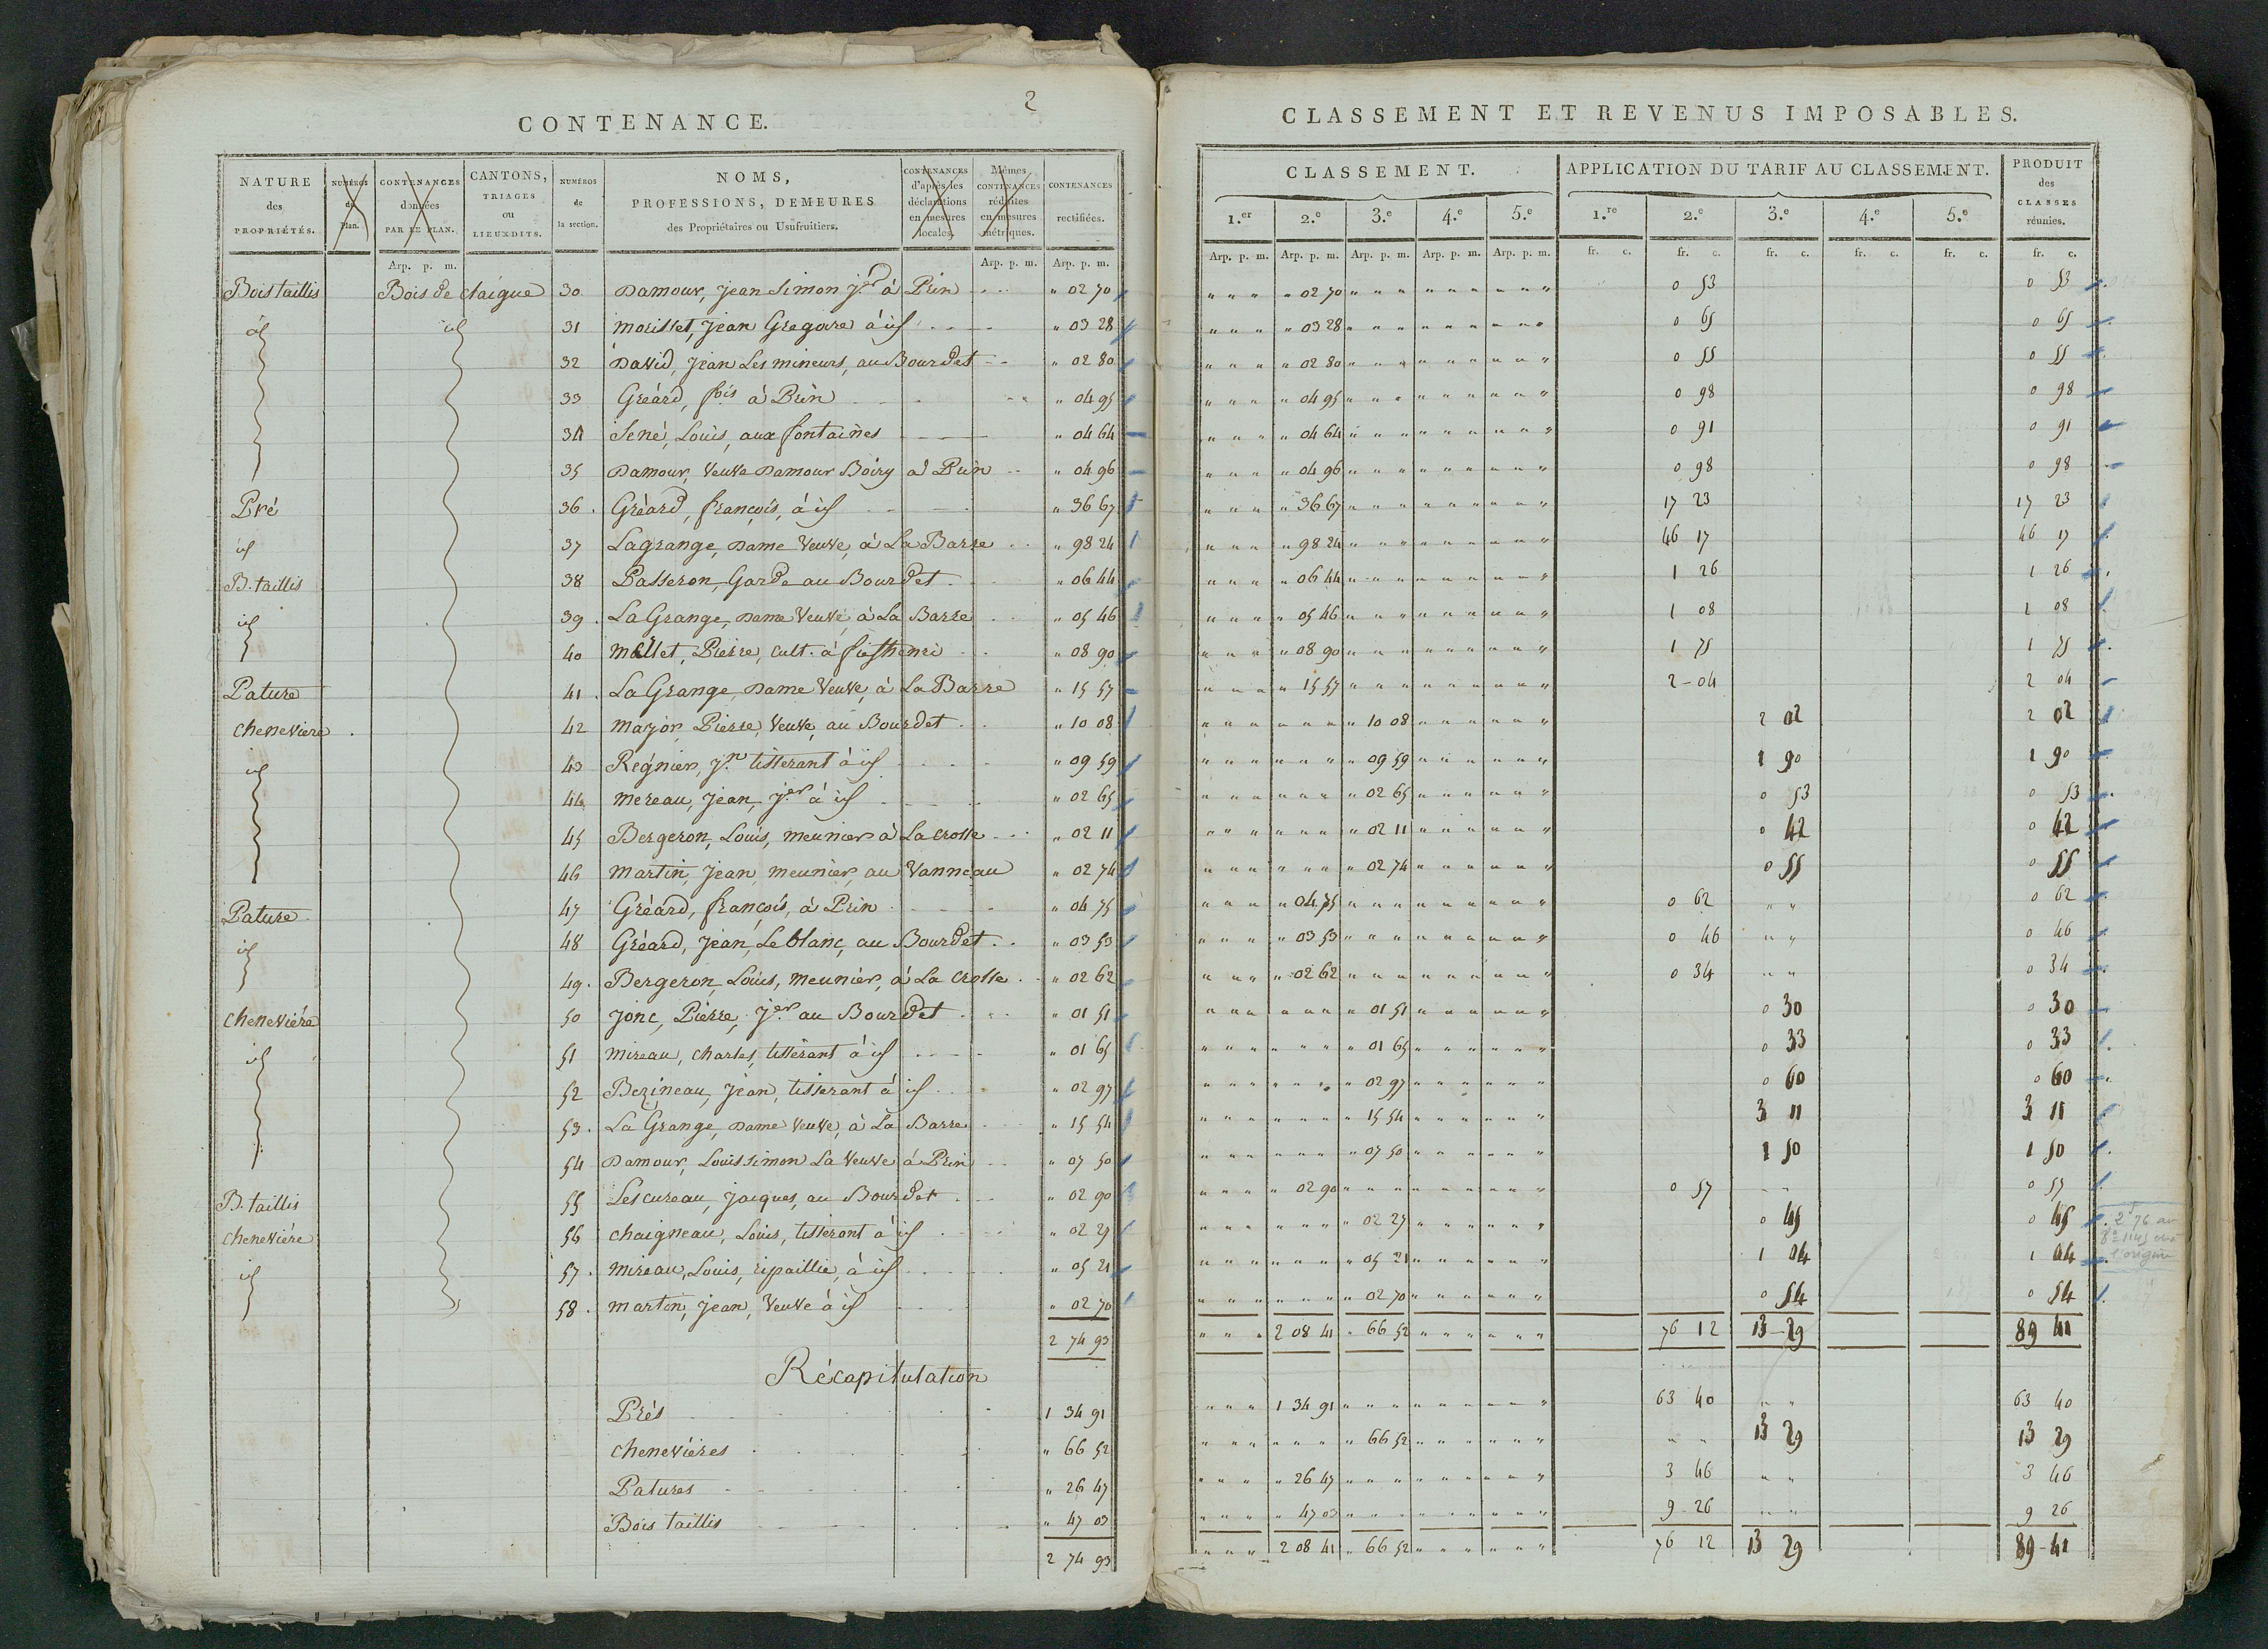 2
CONTENANCE.
NATURE des PROPRIÉTÉS. NUMÉROS du Plan. CONTENANCES données PAR LE PLAN. CANTONS, TRIAGES ou LIEUXDITS. NUMÉROS de la section. NOMS, PROFESSIONS, DEMEURES des Propriétaires ou Usufruitiers. CONTENANCES d'après les déclarations en mesures locales. Mêmes CONTENANCES réduites en mesures métriques. CONTENANCES rectifiées.
Arp. p. m. Arp. p. m. Arp. p. m.
Bois taillis Bois de Claigue 30 Damour, Jean Simon jer à Prin " 02 70
id id 31 Morisset, Jean Gregoire à id " 03 28
32 David, Jean Les mineurs, au Bourdet " 02 80
33 Gréard, fois à Prin " 04 95
34 Sené, Louis, aux fontaines " 04 64
35 Damour, Veuve Damour Boiry à Prin " 04 96
Pré 36. Gréard, françois, à id " 36 67
id 37 Lagrange, Dame Veuve, à La Barre " 98 24
B. taillis 38 Passeron, Garde au Bourdet " 06 44
id 39. La Grange, Dame Veuve, à La Barre " 05 46
40 Mallet, Pierre, cult. à " 08 90
Pature 41. La Grange, Dame Veuve, à La Barre " 15 57
cheneviere 42 Major, Pierre, Veuve, au Bourdet " 10 08
id 43 Regnier, jn tisserant à id " 09 59
44 Mereau, Jean, jer à id " 02 65
45 Bergeron, Louis, meunier à La crosse " 02 11
46 Martin, Jean, meunier, au Vanneau " 02 74
Pature 47 Gréard, françois, à Prin " 04 75
id 48 Gréard, Jean, Le blanc, au Bourdet " 03 53
49. Bergeron, Louis, meunier, à La Crosse " 02 62
cheneviére 50 Jonc, Pierre, jer au Bourdet " 01 51
id 51 Mireau, charles, tisserant à id " 01 65
52 Bezineau, Jean, tisserant à id " 02 97
53. La Grange, Dame Veuve, à La Barre " 15 54
54 Damour, Louis Simon La Veuve à Prin " 07 50
B. taillis 55 Lescureau, Jacques, au Bourdet " 02 90
cheneviére 56 Chaigneau, Louis, tisserant à id " 02 27
id 57. Mireau, Louis, ripaillie, à id " 05 21
58. Martin, Jean, Veuve à id " 02 70
2 74 93
Récapitulation
Prés 1 34 91
cheneviéres " 66 52
Patures " 26 47
Bois taillis " 47 03
2 74 93
CLASSEMENT ET REVENUS IMPOSABLES.
CLASSEMENT. APPLICATION DU TARIF AU CLASSEMENT. PRODUIT des CLASSES réunies.
1.er 2.e 3.e 4.e 5.e 1.re 2.e 3.e 4.e 5.e
Arp. p. m. Arp. p. m. Arp. p. m. Arp. p. m. Arp. p. m. fr. c. fr. c. fr. c. fr. c. fr. c. fr. c.
" " " " 02 70 " " " " " " " " " 0 53 0 53
" " " " 03 28 " " " " " " " " " 0 65 0 65
" " " " 02 80 " " " " " " " " " 0 55 0 55
" " " " 04 95 " " " " " " " " " 0 98 0 98
" " " " 04 64 " " " " " " " " " 0 91 0 91
" " " " 04 96 " " " " " " " " " 0 98 0 98
" " " " 36 67 " " " " " " " " " 17 23 17 23
" " " " 98 24 " " " " " " " " " 46 17 46 17
" " " " 06 44 " " " " " " " " " 1 26 1 26
" " " " 05 46 " " " " " " " " " 1 08 1 08
" " " " 08 90 " " " " " " " " " 1 75 1 75
" " " " 15 57 " " " " " " " " " 2-04 2 04
" " " " " " " 10 08 " " " " " " 2 02 2 02
" " " " " " " 09 59 " " " " " " 1 90 1 90
" " " " " " " 02 65 " " " " " " 0 53 0 53
" " " " " " " 02 11 " " " " " " 0 42 0 42
" " " " " " " 02 74 " " " " " " 0 55 0 55
" " " " 04 75 " " " " " " " " " 0 62 " " 0 62
" " " " 03 53 " " " " " " " " " 0 46 " " 0 46
" " " " 02 62 " " " " " " " " " 0 34 " " 0 34
" " " " " " " 01 51 " " " " " " 0 30 0 30
" " " " " " " 01 65 " " " " " " 0 33 0 33
" " " " " " " 02 97 " " " " " " 0 60 0 60
" " " " " " " 15 54 " " " " " " 3 11 3 11
" " " " " " " 07 50 " " " " " " 1 50 1 50
" " " " 02 90 " " " " " " " " " 0 57 " " 0 57
" " " " " " " 02 27 " " " " " " 0 45 0 45
" " " " " " " 05 21 " " " " " " 1 04 1 04
" " " " " " " 02 70 " " " " " " 0 54 0 54
" " " 2 08 41 " 66 52 " " " " " " 76 12 13-29 89 41
" " " 1 34 91 " " " " " " " " " 63 40 " " 63 40
" " " " " " " 66 52 " " " " " " " " 13 29 13 29
" " " " 26 47 " " " " " " " " " 3 46 " " 3 46
" " " " 47 03 " " " " " " " " " 9-26 " " 9 26
" " " 2 08 41 " 66 52 " " " " " " 76 12 13 29 89-41
l'origine